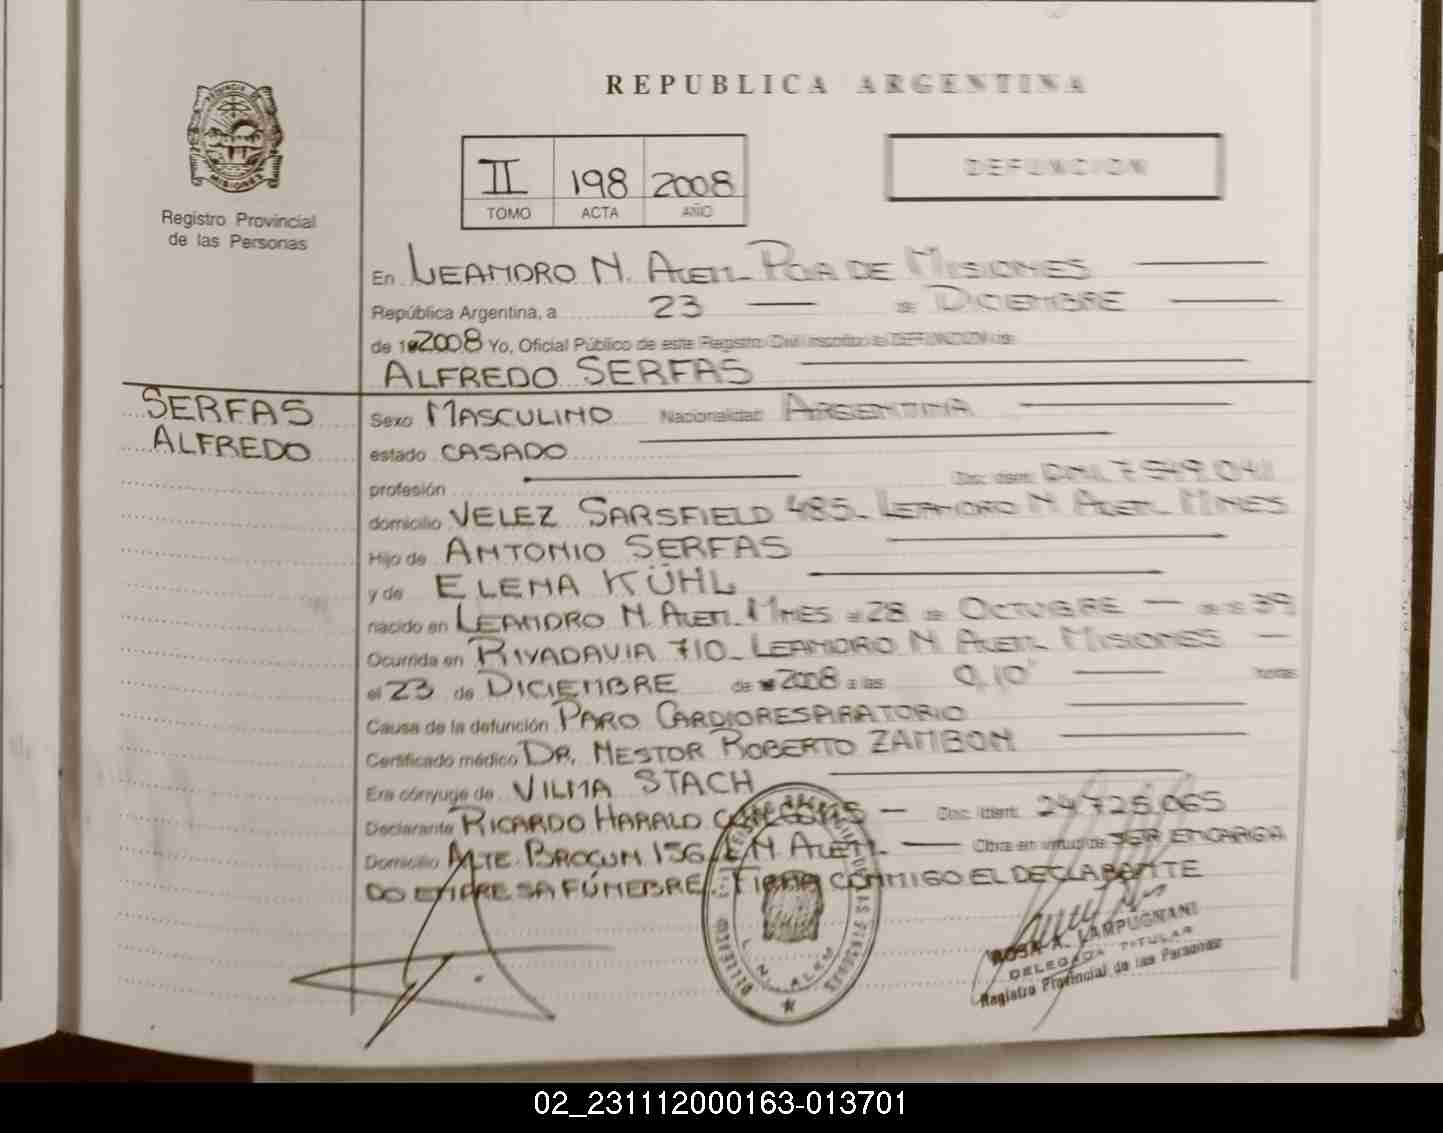 REPUBLICA ARGENTINA
PROVINCIA DE
MISIONES
Registro Provincial
de las Personas
II 198 2008
TOMO ACTA AÑO
DEFUNCION
En LEANDRO N. ALEM PCIA DE MISIONES
República Argentina, a 23 de DICIEMBRE
de 2008 Yo, Oficial Público de este Registro Civil inscribo la DEFUNCION de
ALFREDO SERFAS
SERFAS
ALFREDO
Sexo MASCULINO Nacionalidad ARGENTINA
estado CASADO
profesión Doc. Ident. DNI. 7.549.041
domicilio VELEZ SARSFIELD 485. LEANDRO N ALEM. MNES
Hijo de ANTONIO SERFAS
y de ELENA KÜHL
nacido en LEANDRO N. ALEM. MNES el 28 de OCTUBRE de 39
Ocurrida en RIVADAVIA 710. LEANDRO N ALEM MISIONES
el 23 de DICIEMBRE de 2008 a las 0,10' horas
Causa de la defunción PARO CARDIORESPIRATORIO
Certificado médico DR. NESTOR ROBERTO ZAMBON
Era cónyuge de VILMA STACH
Declarante RICARDO HARALD Doc. Ident. 24.725.065
Domicilio ALTE BROWN 156. L N. ALEM. Obra en virtud de SER ENCARGA
DO EMPRESA FÚNEBRE. FIRMA CONMIGO EL DECLARANTE
L. N. ALEM
ROSA A. LARPUGNANI
DELEGADA TITULAR
Registro Provincial de las Personas
02_231112000163-013701